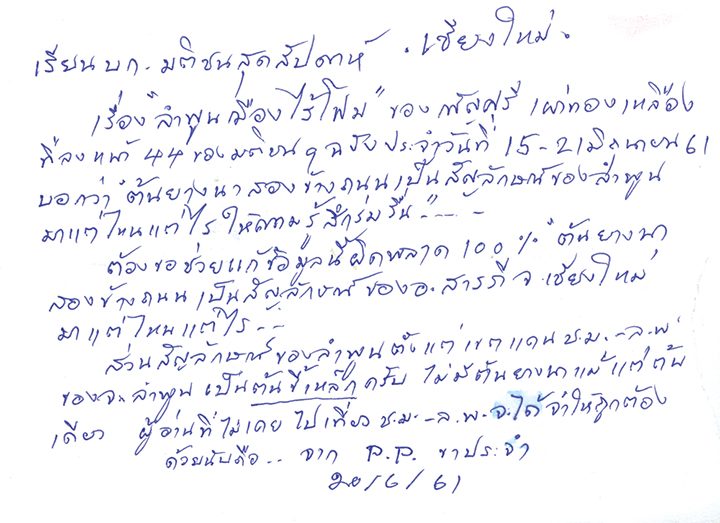 เชียงใหม่.
เรียน บก. มติชนสุดสัปดาห์
เรื่อง "ลำพูนเมืองไร้โฟม" ของ เผ่าทองเหลือง
ที่ลงหน้า 44 ของมติชน ฉบับประจำวันที่ 15-21 มิถุนายน 61
บอกว่า "ต้นยางนาสองข้างถนนเป็นสัญลักษณ์ของลำพูน
มาแต่ไหนแต่ไร ให้ความรู้สึกร่มรื่น"....
ต้องขอช่วยแก้ข้อมูลนี้ผิดพลาด 100% "ต้นยางนา
สองข้างถนนเป็นสัญลักษณ์ของอ.สารภี จ.เชียงใหม่
มาแต่ไหนแต่ไร...
ส่วนสัญลักษณ์ของลำพูนตั้งแต่เขตแดน ช.ม.-ล.พ
ของจ.ลำพูน เป็นต้นขี้เหล็กครับ ไม่มีต้นยางนาแม้แต่ต้น
เดียว ผู้อ่านที่ไม่เคยไปเที่ยว ช.ม.-ล.พ. จะได้จำให้ถูกต้อง
ด้วยนับถือ.. จาก ขาประจำ
20/6/61